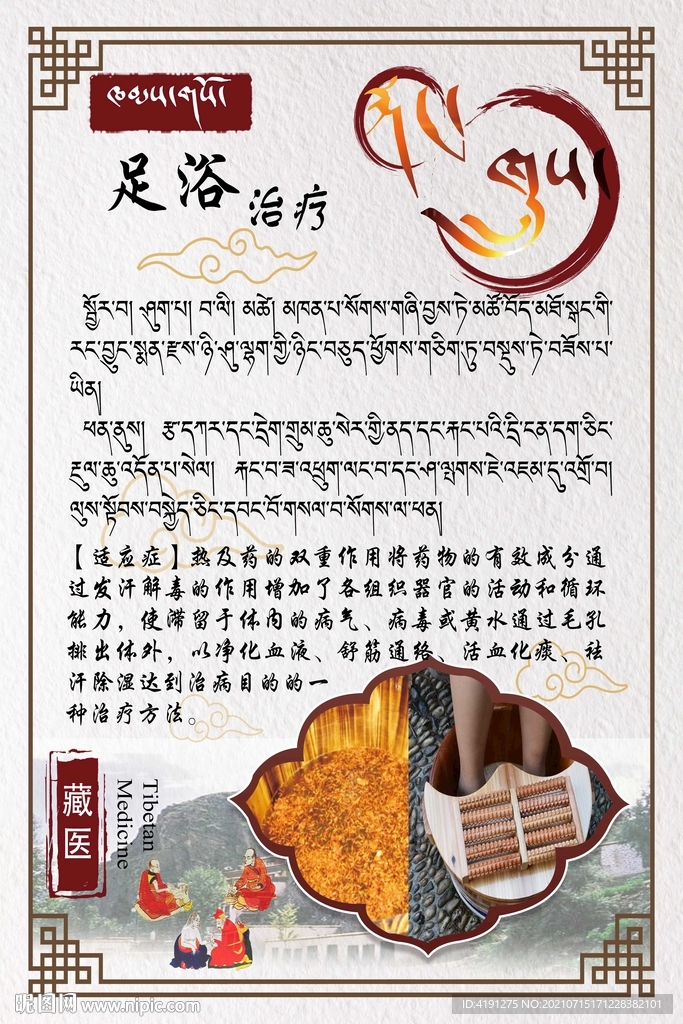 足浴
治疗
སྦྱོར་བ། ཤུག་པ། བ་ལི། མཚེ། མཁན་པ་སོགས་གཞི་བྱས་ཏེ་མཚོ་བོད་མཐོ་སྒང་གི་
རང་བྱུང་སྨན་རྫས་ཉི་ཤུ་ལྷག་གྱི་ཉིང་བཅུད་ཕྱོགས་གཅིག་ཏུ་བསྡུས་ཏེ་བཟོས་པ་
ཡིན།
ཕན་ནུས། རྩ་དཀར་དང་དྲེག་གྲུམ་ཆུ་སེར་གྱི་ནད་དང་རྐང་པའི་དྲི་ངན་དག་ཅིང་
རྔུལ་ཆུ་འདོན་པ་སེལ། རྐང་བ་ཟ་འཕྲུག་ལང་བ་དང་ཤ་ལྤགས་ཇེ་འཇམ་དུ་འགྲོ་བ།
ལུས་སྟོབས་བསྐྱེད་ཅིང་དབང་པོ་གསལ་བ་སོགས་ལ་ཕན།
【适应症】热及药的双重作用将药物的有效成分通
过发汗解毒的作用增加了各组织器官的活动和循环
能力，使滞留于体内的病气、病毒或黄水通过毛孔
排出体外，以净化血液、舒筋通络、活血化痰、祛
汗除湿达到治病目的的一
种治疗方法。
藏医
Tibetan
Medicine
昵图网 www.nipic.com
ID:4191275 NO:20210715171228382101